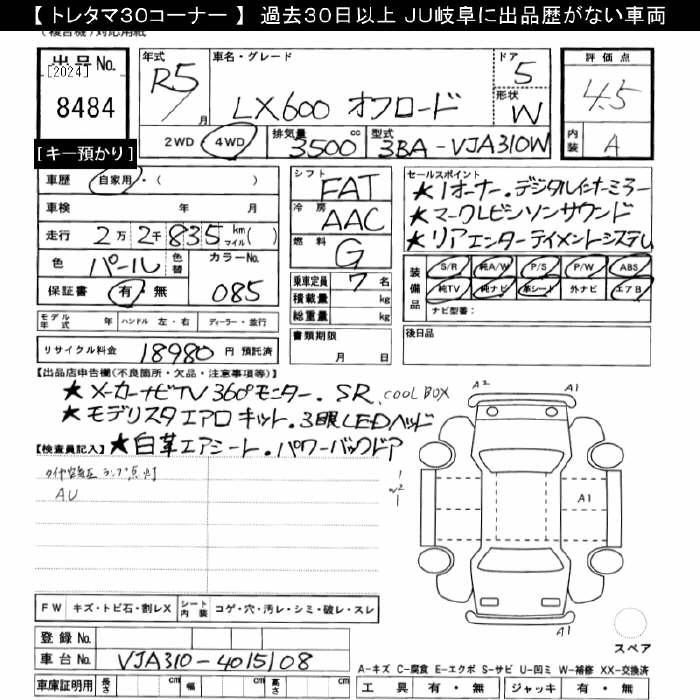 【 トレタマ30コーナー 】 過去30日以上 JU岐阜に出品歴がない車両
出品No.
[2024]
8484
[キー預かり]
年式 R5 月
車名・グレード LX600 オフロード
ドア 5
形状 W
2WD・4WD
排気量 3500 cc
型式 3BA-VJA310W
評価点 4.5
内装 A
車歴 自家用・( )
車検 年 月
走行 2万 2千 835 km マイル( )
色 パール 色替 カラーNo. 085
保証書 有・無
モデル年式 年 ハンドル 左・右 ディーラー・並行
リサイクル料金 18980 円 預託済
シフト FAT
冷房 AAC
燃料 G
乗車定員 7 名
積載量 kg
総重量 kg
書類期限 月 日
セールスポイント
★1オーナー.デジタルインナーミラー
★マークレビンソンサウンド
★リアエンターテイメントシステム
装備品
S/R 純A/W P/S P/W ABS
純TV 純ナビ 革シート 外ナビ エアB
ナビ型番:
後日品
【出品店申告欄(不良箇所・欠品・注意事項等)】
★メーカーナビTV 360°モニター. SR. COOL BOX
★モデリスタエアロキット.3眼LEDヘッド
★白革エアシート.パワーバックドア
【検査員記入】
タイヤ空気圧ランプ点灯
AU
A2 A1
A1
A1
FW キズ・トビ石・割レX シート内装 コゲ・穴・汚レ・シミ・破レ・スレ
スペア
登録No.
車台No. VJA310-4015108
A-キズ C-腐食 E-エクボ S-サビ U-凹ミ W-補修 XX-交換済
車庫証明用 長さ cm 幅 cm 高さ cm
工具 有・無 ジャッキ 有・無